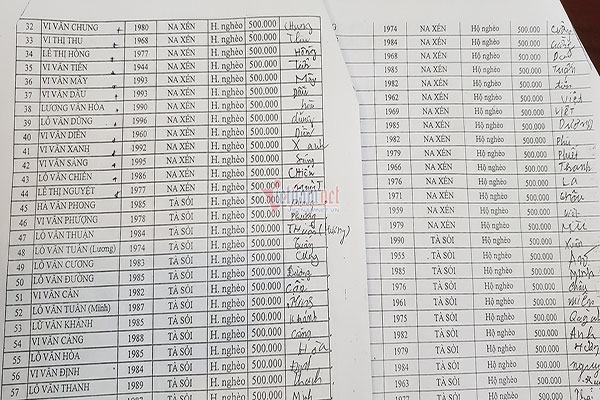 32 VI VĂN CHUNG 1980 NA XÉN H. nghèo 500.000 Chung
33 VI THỊ THU 1968 NA XÉN H. nghèo 500.000 Thu
34 LÊ THỊ HỒNG 1977 NA XÉN H. nghèo 500.000 Hồng
35 VI VĂN TIẾN 1944 NA XÉN H. nghèo 500.000
36 VI VĂN MÂY 1993 NA XÉN H. nghèo 500.000 Mây
37 VI VĂN DẬU 1993 NA XÉN H. nghèo 500.000 Dậu
38 LƯƠNG VĂN HÒA 1990 NA XÉN H. nghèo 500.000
39 LÔ VĂN DŨNG 1996 NA XÉN H. nghèo 500.000 dũng
40 VI VĂN DIỄN 1960 NA XÉN H. nghèo 500.000
41 VI VĂN XANH 1992 NA XÉN H. nghèo 500.000 Xanh
42 VI VĂN SÁNG 1995 NA XÉN H. nghèo 500.000 Sáng
43 LÔ VĂN CHIẾN 1986 NA XÉN H. nghèo 500.000 Chiến
44 LÊ THỊ NGUYỆT 1977 NA XÉN H. nghèo 500.000
45 HA VĂN PHONG 1985 TÀ SỎI H. nghèo
46 VI VĂN PHƯỢNG 1978 TÀ SỎI H. nghèo 500.000 Phượng
47 LÔ VĂN THUẬN 1984 TÀ SỎI H. nghèo 500.000
48 LÔ VĂN TUẤN (Lương) 1974 TÀ SỎI H. nghèo 500.000 Tuấn
49 LÔ VĂN CƯƠNG 1983 TÀ SỎI H. nghèo 500.000
50 LÔ VĂN ĐƯỜNG 1985 TÀ SỎI H. nghèo 500.000 Đường
51 VI VĂN CẦN 1982 TÀ SỎI H. nghèo 500.000 Cần
52 LÔ VĂN TUÂN (Minh) 1987 TÀ SỎI H. nghèo 500.000
53 LỮ VĂN KHÁNH 1985 TÀ SỎI H. nghèo 500.000 Khánh
54 VI VĂN CÀNG 1988 TÀ SỎI H. nghèo 500.000 Càng
55 LÔ VĂN HÒA 1985 TÀ SỎI H. nghèo 500.000 Hòa
56 VI VĂN ĐỊNH 1984 TÀ SỎI H. nghèo 500.000 Định
57 LÔ VĂN THANH 1989 TÀ SỎI H. nghèo 500.000
1987 TÀ SỎI H. nghèo 500.000
1974 NA XÉN Hộ nghèo 500.000
1984 NA XÉN Hộ nghèo 500.000
1968 NA XÉN Hộ nghèo 500.000
1985 NA XÉN Hộ nghèo 500.000
1982 NA XÉN Hộ nghèo 500.000
1962 NA XÉN Hộ nghèo 500.000 Việt
1969 NA XÉN Hộ nghèo 500.000 Việt
1985 NA XÉN Hộ nghèo 500.000 Dương
1982 NA XÉN Hộ nghèo 500.000
1979 NA XÉN Hộ nghèo 500.000
1966 NA XÉN Hộ nghèo 500.000 Thanh
1976 NA XÉN Hộ nghèo 500.000 La
1971 NA XÉN Hộ nghèo 500.000
1959 NA XÉN Hộ nghèo 500.000
1979 NA XÉN Hộ nghèo 500.000
1990 TÀ SỎI Hộ nghèo 500.000
1955 TÀ SỎI Hộ nghèo 500.000
1985 TÀ SỎI Hộ nghèo 500.000 Minh
1976 TÀ SỎI Hộ nghèo 500.000
1961 TÀ SỎI Hộ nghèo 500.000
1975 TÀ SỎI Hộ nghèo 500.000
1982 TÀ SỎI Hộ nghèo 500.000 Anh
1979 TÀ SỎI Hộ nghèo 500.000
1984 TÀ SỎI Hộ nghèo 500.000
1963 TÀ SỎI Hộ nghèo 500.000
1977 TÀ SỎI Hộ nghèo 500.000